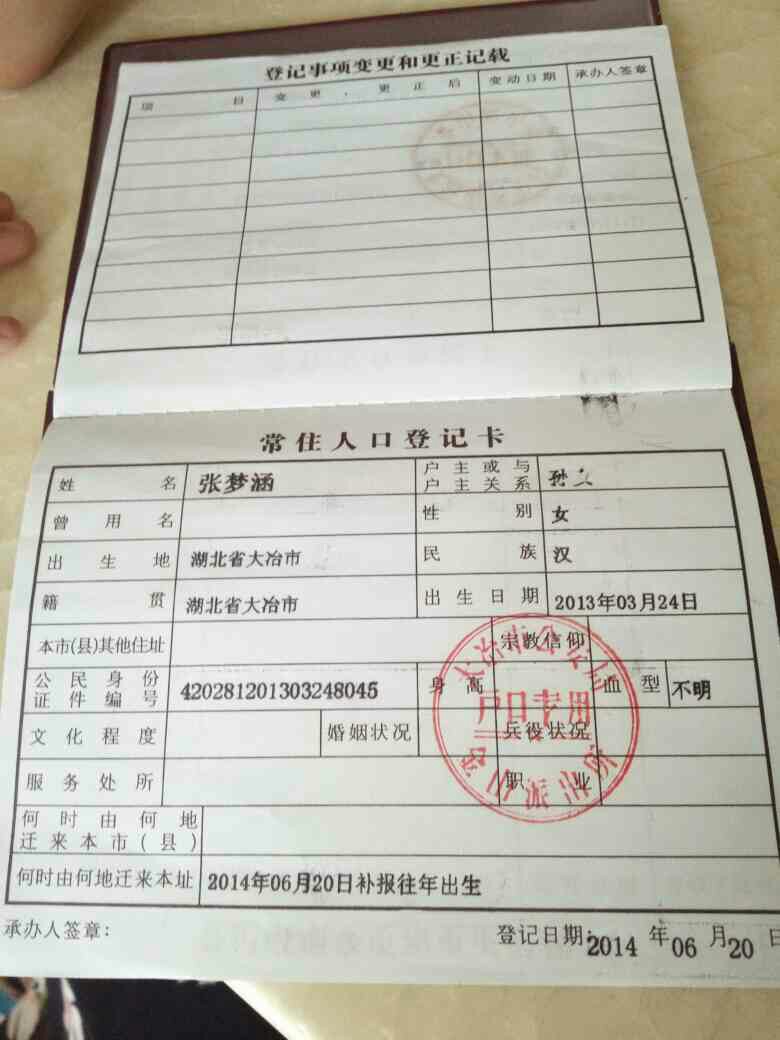 登记事项变更和更正记载
项目 变更、更正后 变动日期 承办人签章
常住人口登记卡
姓名 张梦涵 户主或与户主关系 孙女
曾用名 性别 女
出生地 湖北省大冶市 民族 汉
籍贯 湖北省大冶市 出生日期 2013年03月24日
本市(县)其他住址 宗教信仰
公民身份证件编号 420281201303248045 身高 血型 不明
文化程度 婚姻状况 兵役状况
服务处所 职业
何时由何地迁来本市(县)
何时由何地迁来本址 2014年06月20日补报往年出生
承办人签章: 登记日期:2014年06月20日
大冶市公安局
户口专用
派出所